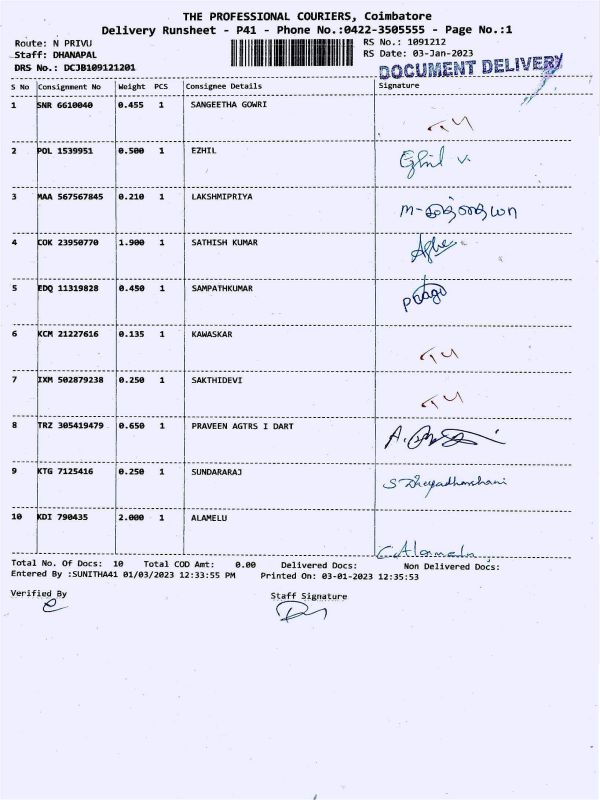 THE PROFESSIONAL COURIERS, Coimbatore
Delivery Runsheet - P41 - Phone No.:0422-3505555 - Page No.:1
Route: N PRIVU
RS No.: 1091212
Staff: DHANAPAL
RS Date: 03-Jan-2023
DRS No.: DCJB109121201
DOCUMENT DELIVERY
S No Consignment No Weight PCS Consignee Details Signature
1 SNR 6610040 0.455 1 SANGEETHA GOWRI
2 POL 1539951 0.500 1 EZHIL Ezhil v.
3 MAA 567567845 0.210 1 LAKSHMIPRIYA
4 COK 23950770 1.900 1 SATHISH KUMAR
5 EDQ 11319828 0.450 1 SAMPATHKUMAR
6 KCM 21227616 0.135 1 KAWASKAR
7 IXM 502879238 0.250 1 SAKTHIDEVI
8 TRZ 305419479 0.650 1 PRAVEEN AGTRS I DART
9 KTG 7125416 0.250 1 SUNDARARAJ
10 KDI 790435 2.000 1 ALAMELU C. Alamelu
Total No. Of Docs: 10 Total COD Amt: 0.00 Delivered Docs: Non Delivered Docs:
Entered By :SUNITHA41 01/03/2023 12:33:55 PM Printed On: 03-01-2023 12:35:53
Verified By Staff Signature